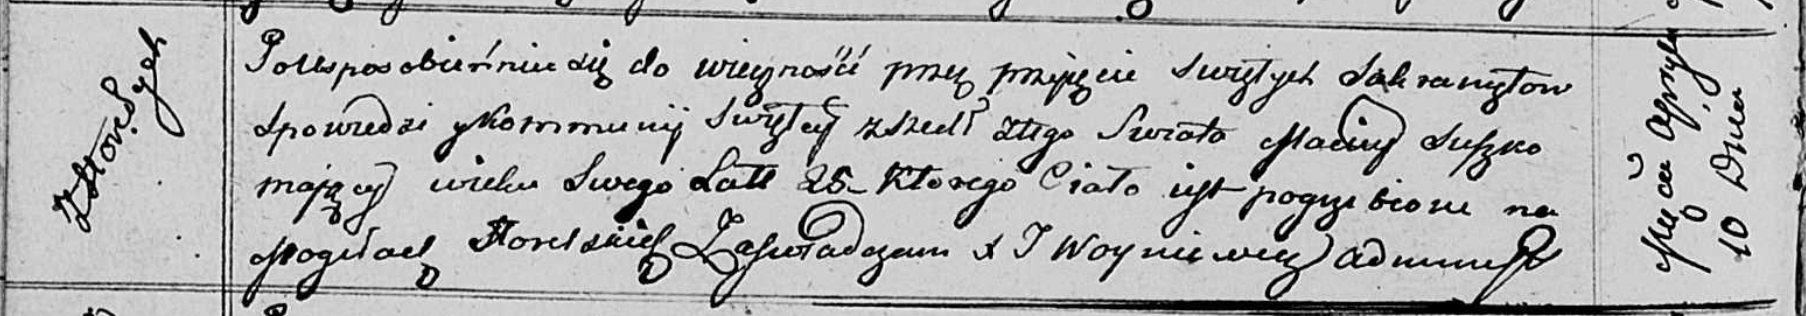 Z Horek
Po Usposobieniu się do wieczności przez przyjęcie Swiętych Sakramętow
Spowiedzi y Kommunij Swiętey zszedł ztego Swiata Maciey Suszko
mający wieku Swego Latt 25 Ktorego Ciało iest pogrzebione na
Mogiłach Zaswiadczam X J Woyniewicz Administ
Mca Apryla
10 Dnia